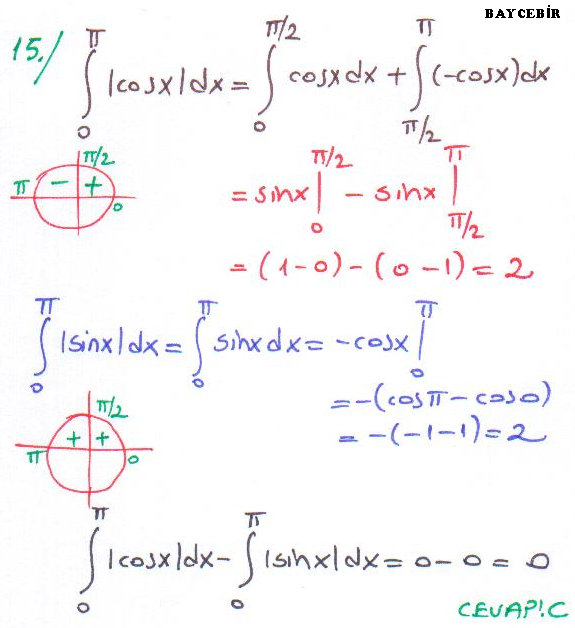 BAYCEBİR
15./ ∫₀^π |cosx|dx = ∫₀^{π/2} cosxdx + ∫_{π/2}^π (-cosx)dx
π/2
π - + 0
= sinx |₀^{π/2} - sinx |_{π/2}^π
= (1-0) - (0-1) = 2
∫₀^π |sinx|dx = ∫₀^π sinxdx = -cosx |₀^π
= -(cosπ - cos0)
= -(-1-1) = 2
π/2
π + + 0
∫₀^π |cosx|dx - ∫₀^π |sinx|dx = 0 - 0 = 0
CEVAP!C